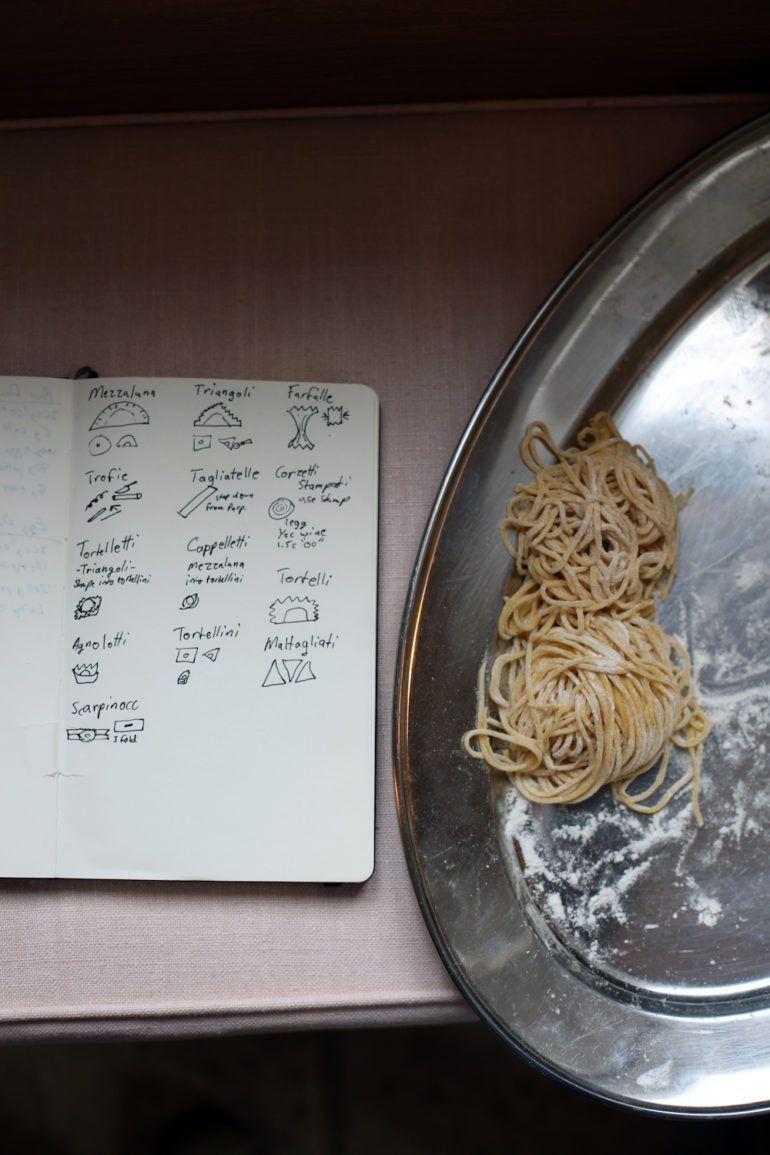 Mezzaluna
Triangoli
Farfalle
Trofie
Tagliatelle
step down
from Parp.
Corzetti
Stampati
use stamp
1egg
Yec wine
1.5c "00"
Tortelletti
-Triangoli-
Shape into tortellini
Cappelletti
Mezzaluna
into tortellini
Tortelli
Agnolotti
Tortellini
Maltagliati
Scarpinocc
3 fold